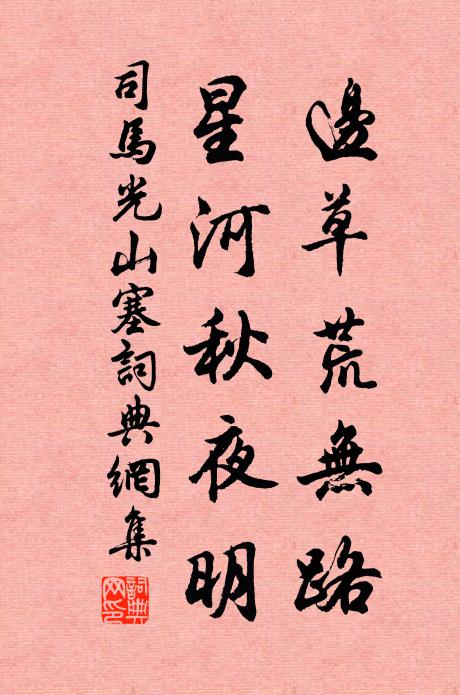 邊草荒無路
星河秋夜明
司馬光山塞詞典網集
詞典網印